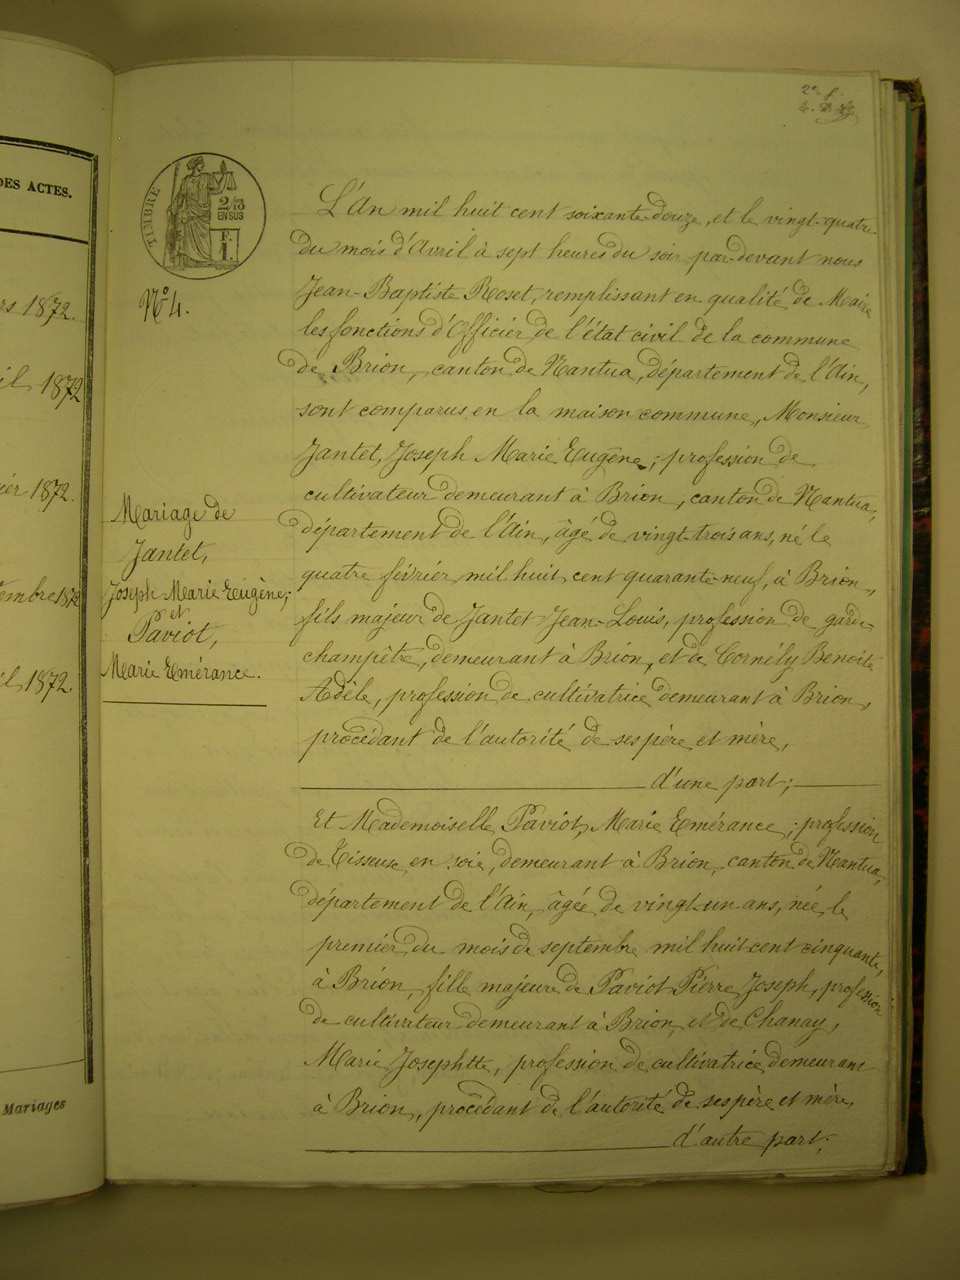 DES ACTES.
1872.
1872
1872.
embre 1872
1872
Mariages
2e f.
TIMBRE
2/10
EN SUS
F.
1.
N° 4.
Mariage de
Jantet,
Joseph Marie Eugène,
et
Paviot,
Marie Emérance.
L'An mil huit cent soixante-douze, et le vingt-quatre
du mois d'Avril à sept heures du soir par-devant nous
Jean-Baptiste Roset, remplissant en qualité de Maire
les fonctions d'Officier de l'état civil de la commune
de Brion, canton de Nantua, département de l'Ain,
sont comparus en la maison commune, Monsieur
Jantet, Joseph Marie Eugène; profession de
cultivateur demeurant à Brion, canton de Nantua,
département de l'Ain, âgé de vingt-trois ans, né le
quatre février mil huit cent quarante-neuf, à Brion,
fils majeur de Jantet Jean-Louis, profession de garde-
champêtre, demeurant à Brion, et de Cornély Benoîte
Adèle, profession de cultivatrice demeurant à Brion,
procédant de l'autorité de ses père et mère,
d'une part;
Et Mademoiselle Paviot, Marie Emérance; profession
de Tisseuse en soie, demeurant à Brion, canton de Nantua,
département de l'Ain, âgée de vingt-un ans, née le
premier du mois de septembre mil huit-cent cinquante,
à Brion, fille majeure de Paviot Pierre Joseph, profession
de cultivateur demeurant à Brion, et de Chanay,
Marie Josephtte, profession de cultivatrice demeurant
à Brion, procédant de l'autorité de ses père et mère,
d'autre part;